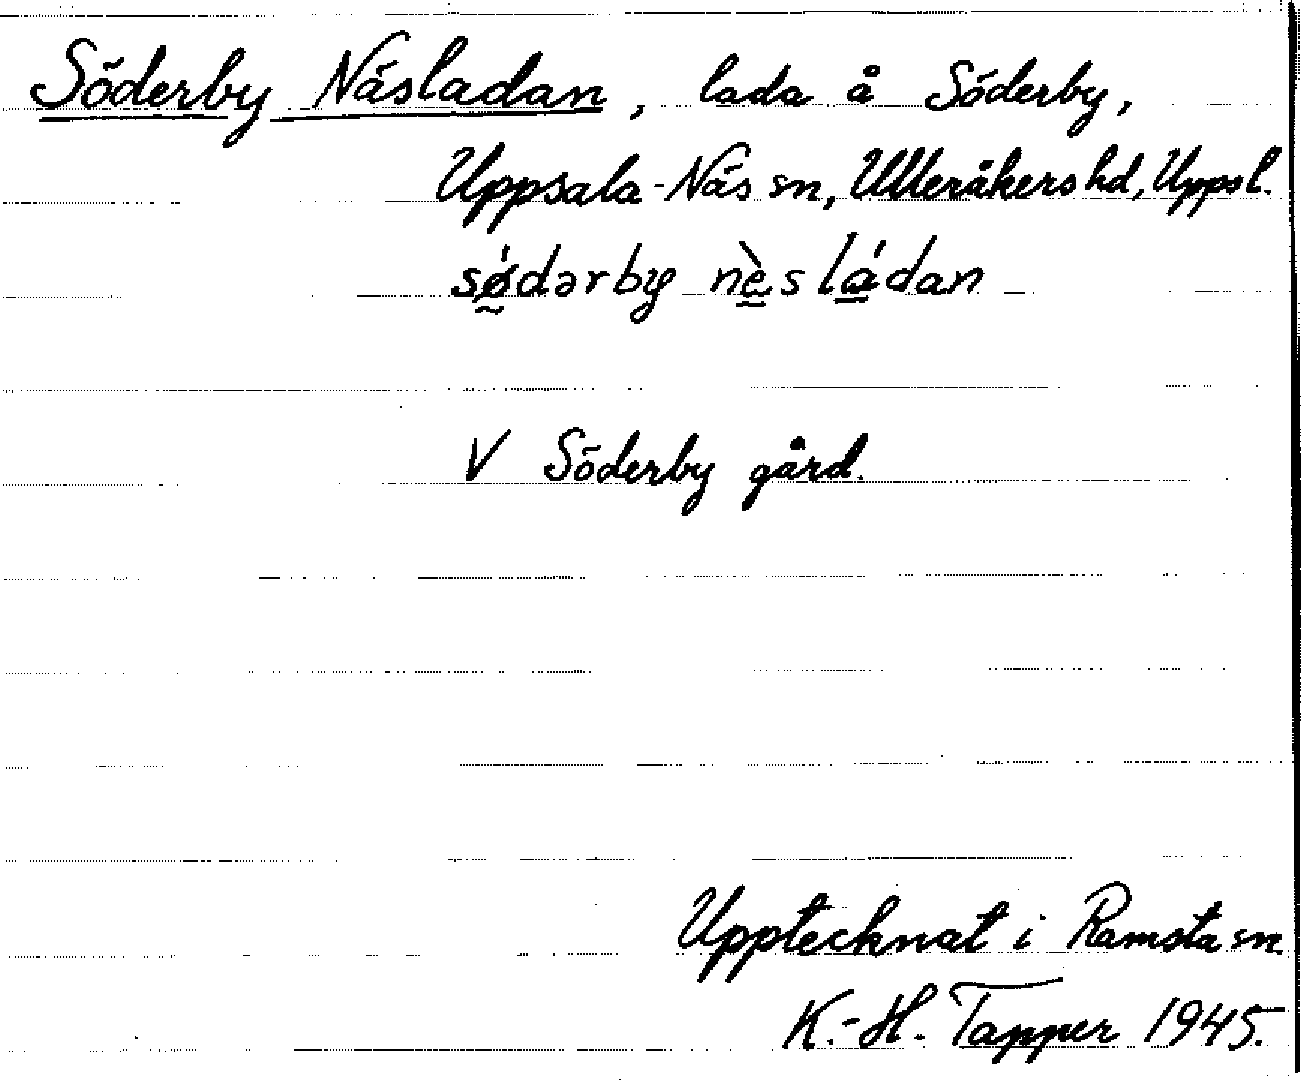 Söderby Näsladan, lada å Söderby,
Uppsala-Näs sn, Ulleråkers hd, Uppsl.
sǿ̰dərby nè̳s lá̳dan
V Söderby gård.
Upptecknat i Ramsta sn
K.-H. Tapper 1945.